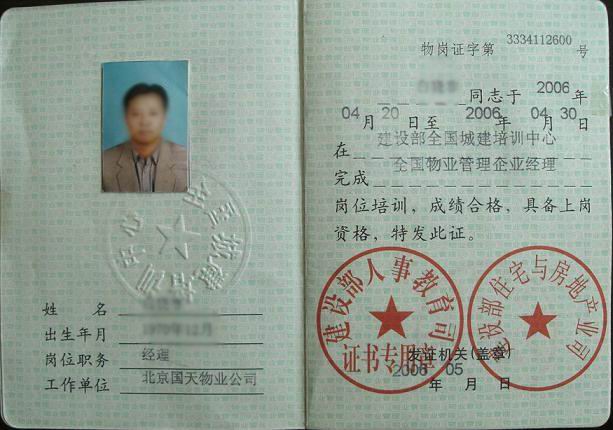 姓 名
出生年月
岗位职务 经理
工作单位 北京国天物业公司
物岗证字第 3334112600 号
同志于 2006 年
04 月 20 日至 2006 年 04 月 30 日
在 建设部全国城建培训中心
完成 全国物业管理企业经理
岗位培训，成绩合格，具备上岗
资格，特发此证。
建设部人事教育司
证书专用章
建设部住宅与房地产业司
发证机关(盖章)
2006 年 05 月 日